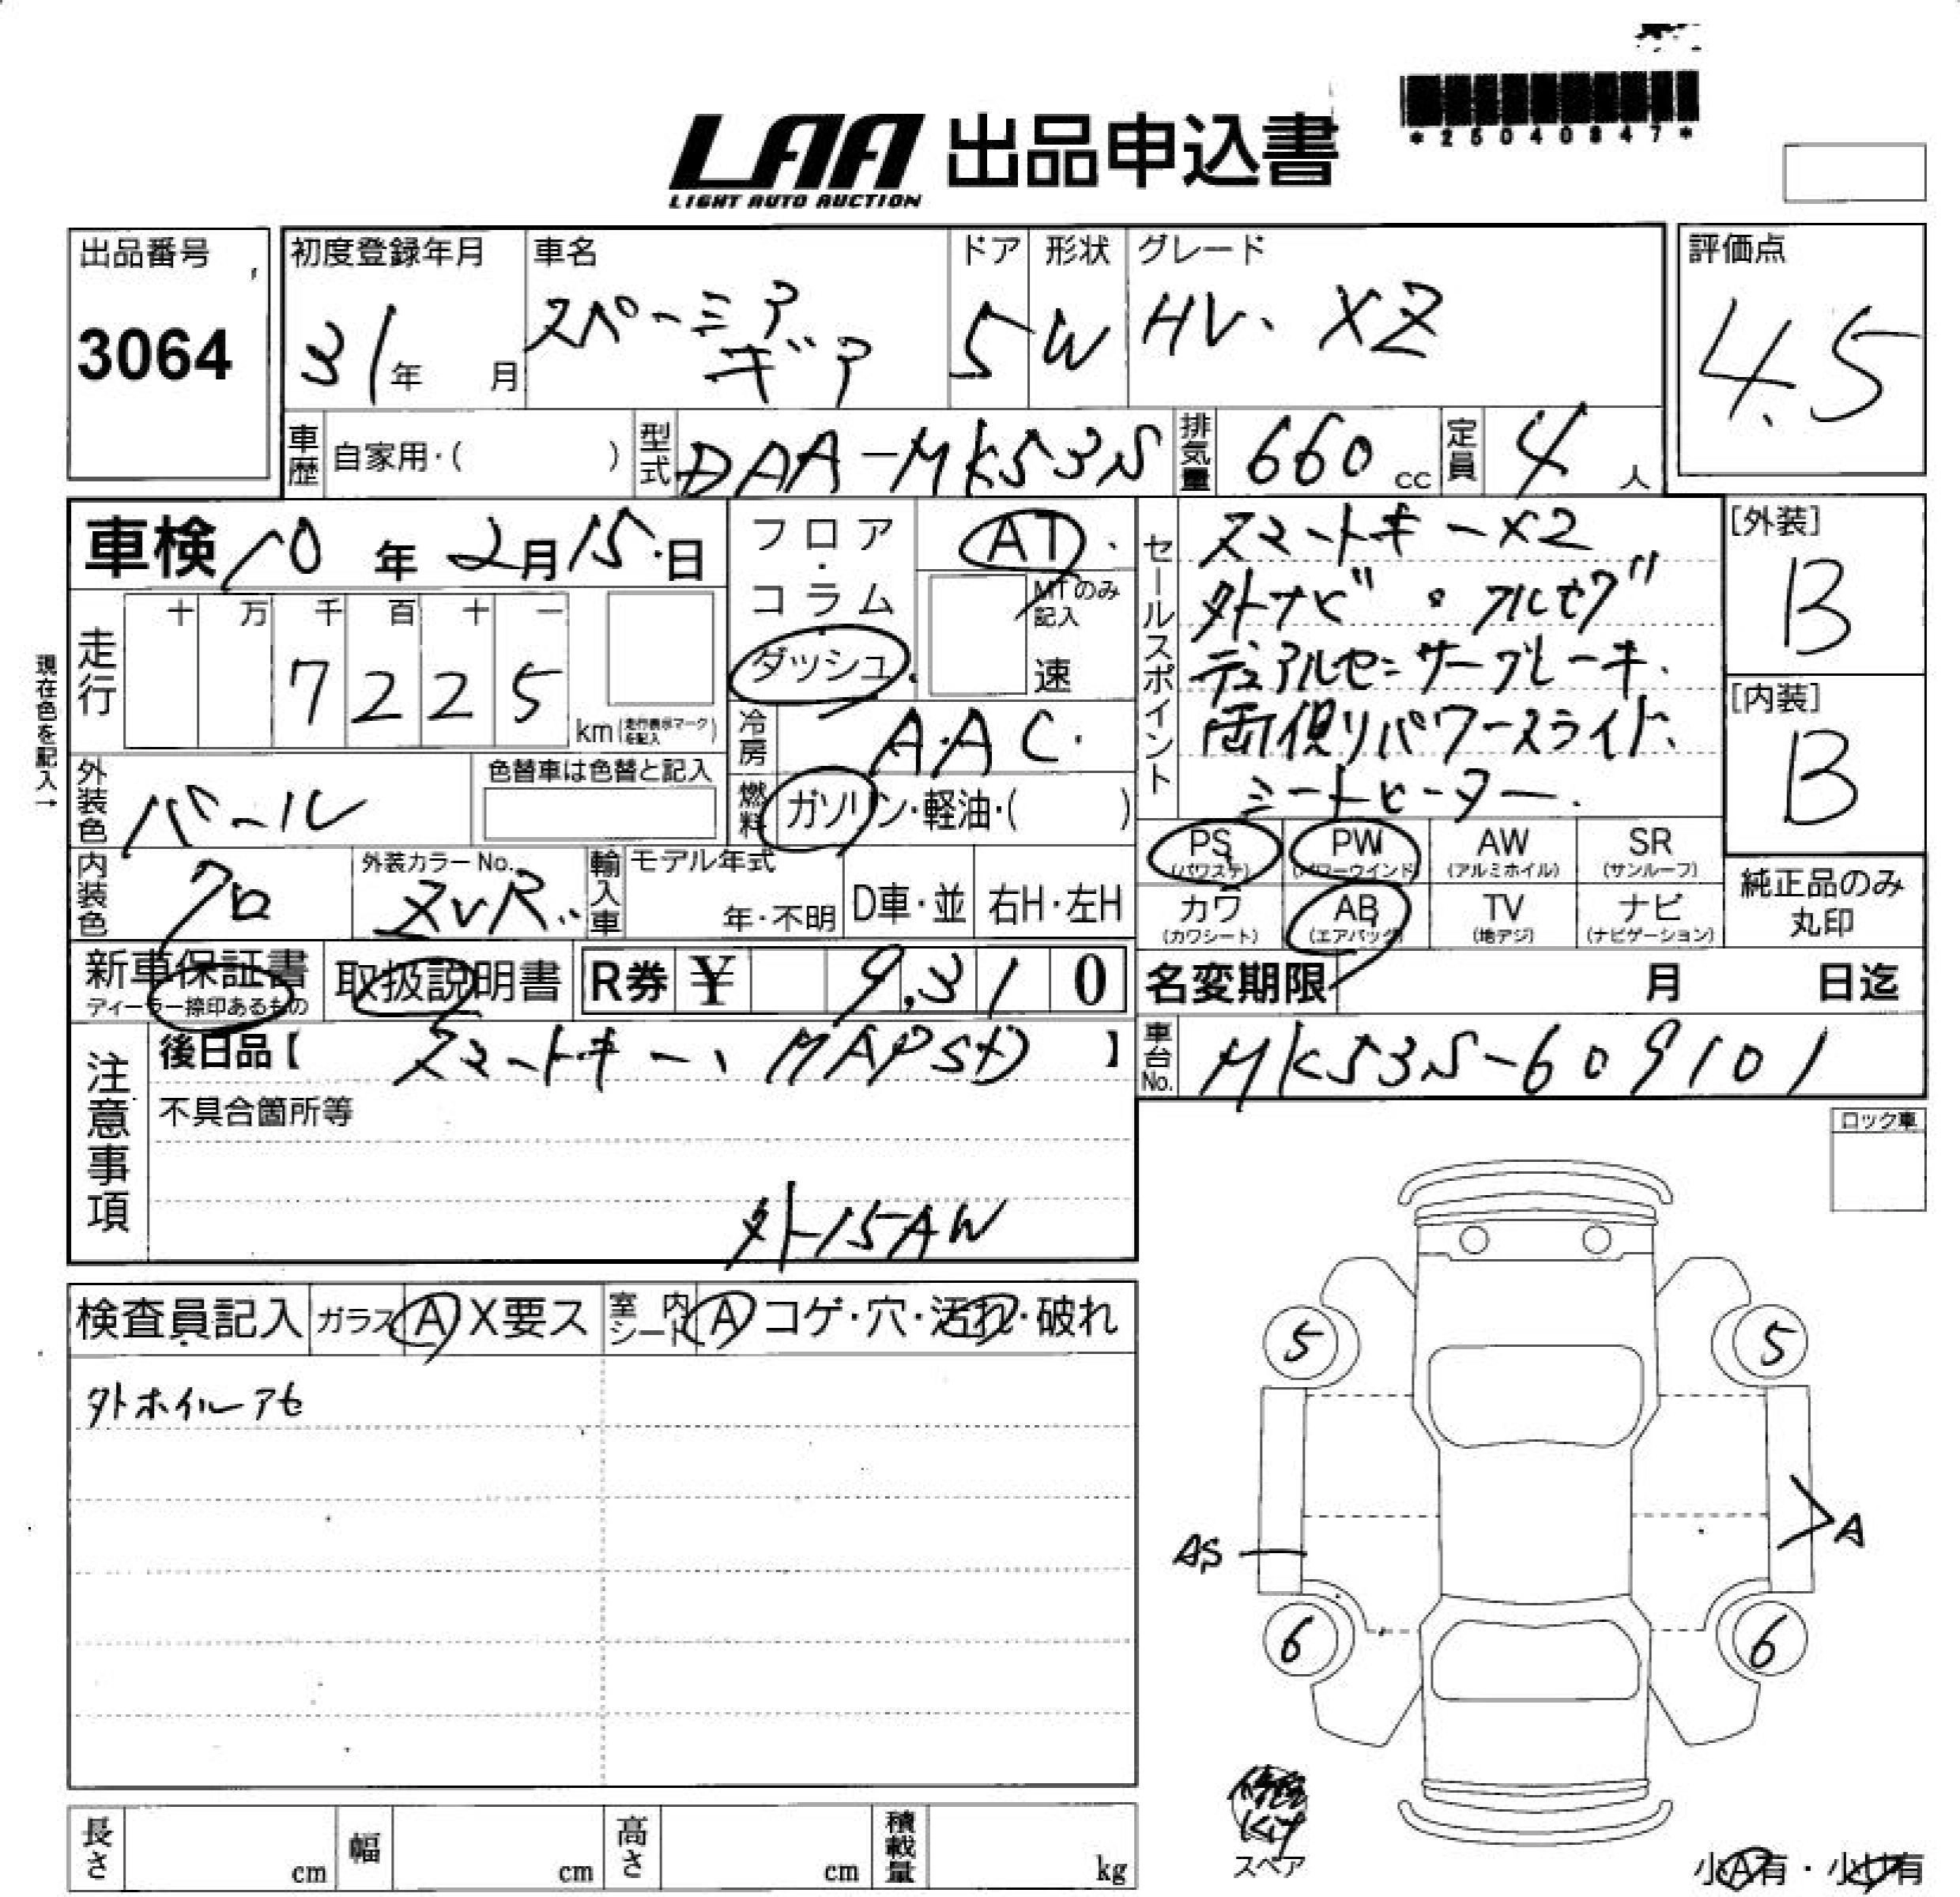 LAA 出品申込書
LIGHT AUTO AUCTION
*25040847*
出品番号
3064
初度登録年月
31年 月
車名
スペーシア
ギア
ドア
5
形状
W
グレード
HV、XZ
評価点
4.5
車歴 自家用・( )
型式 DAA-MK53S
排気量 660 cc
定員 4 人
車検 10 年 2月15日
走行
十 万 千 百 十 一
7 2 2 5
km(走行表示マークを記入)
現在色を記入→
外装色 パール
色替車は色替と記入
内装色 クロ
外装カラーNo.
ZVR
フロア・コラム・ダッシュ
AT
MTのみ記入
速
冷房 A.A C.
燃料 ガソリン・軽油・( )
輸入車 モデル年式
年・不明 D車・並 右H・左H
セールスポイント
スマートキーX2
外ナビ・フルセグ
デュアルセンサーブレーキ
両側リパワースライド、
シートヒーター.
[外装]
B
[内装]
B
PS (パワステ) PW (パワーウインド) AW (アルミホイル) SR (サンルーフ)
カワ (カワシート) AB (エアバッグ) TV (地デジ) ナビ (ナビゲーション)
純正品のみ丸印
新車保証書
ディーラー捺印あるもの
取扱説明書
R券 ¥ 9,310
名変期限 月 日迄
注意事項
後日品【 スマートキー、MAPSD 】
不具合箇所等
外15AW
車台No. MK53S-609101
ロック車
検査員記入 ガラス A X要ス 室内シート A コゲ・穴・汚れ・破れ
外ホイルアセ
5 5
AS A
6 6
修理
Kit
スペア
小A有・小U有
長さ cm 幅 cm 高さ cm 積載量 kg